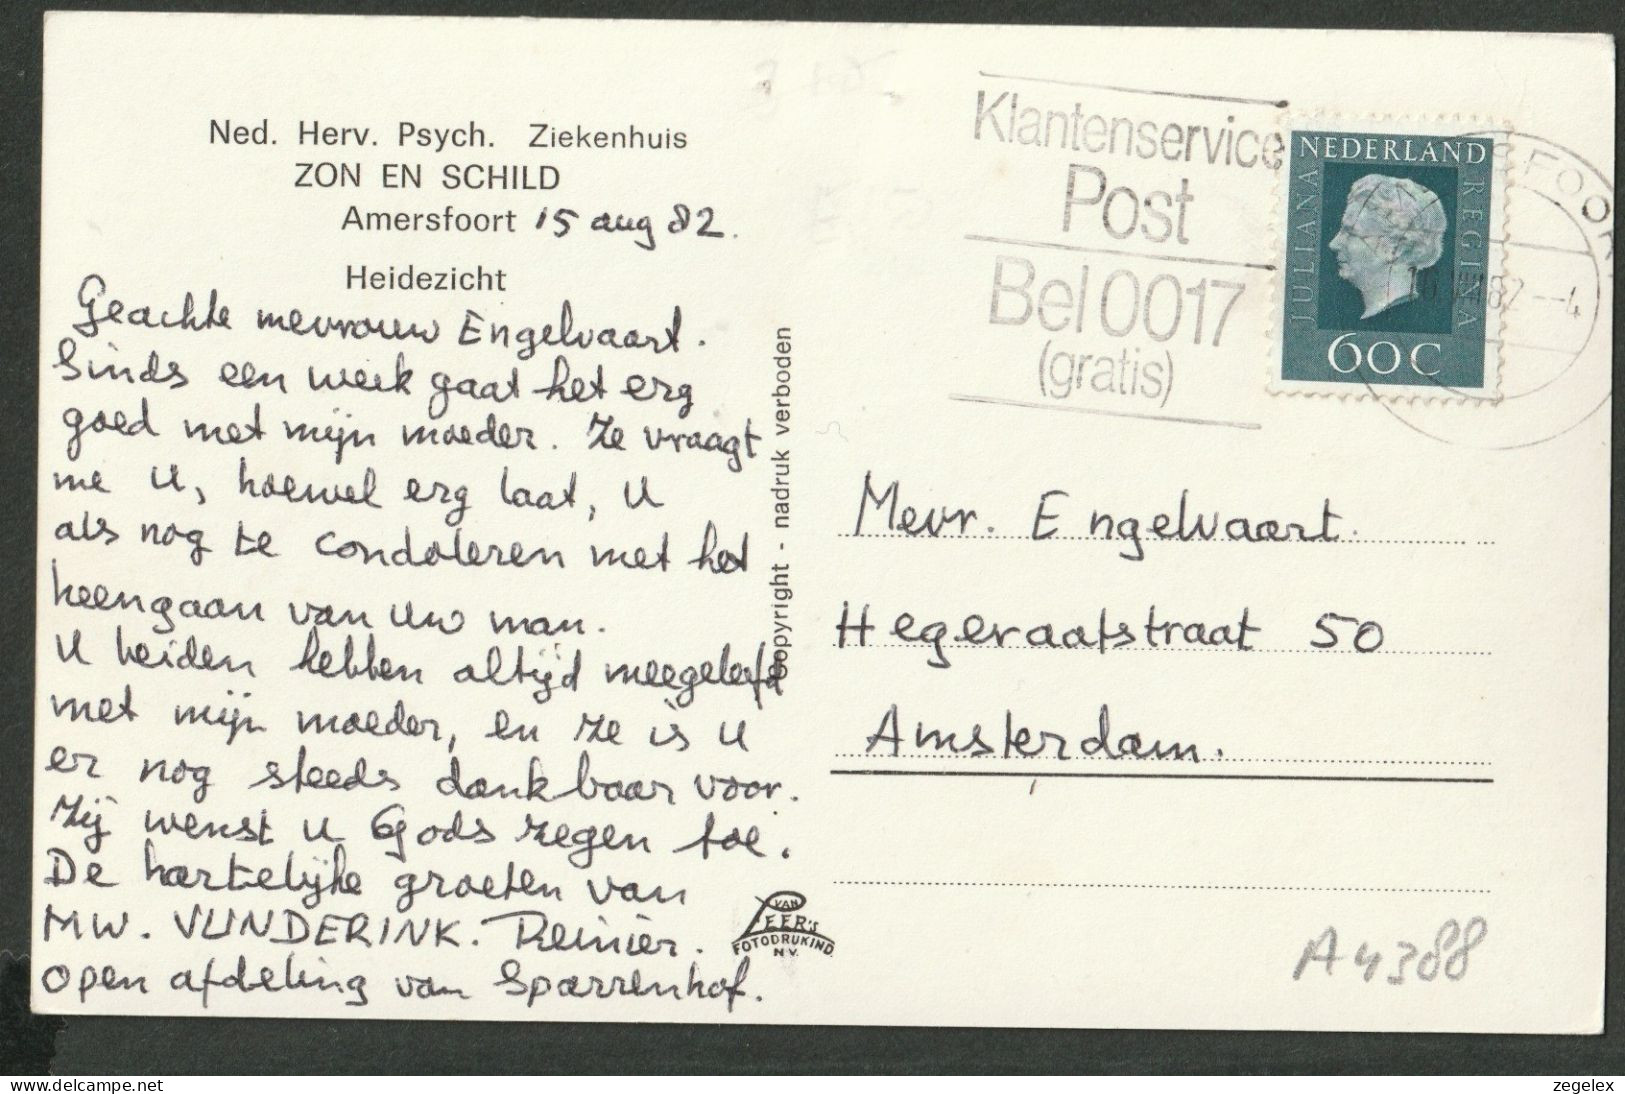 Ned. Herv. Psych. Ziekenhuis
ZON EN SCHILD
Amersfoort 15 aug 82.
Heidezicht
Geachte mevrouw Engelvaart.
Sinds een week gaat het erg
goed met mijn moeder. Ze vraagt
me U, hoewel erg laat, U
als nog te condoleren met het
heengaan van uw man.
U beiden hebben altijd meegeleefd
met mijn moeder, en ze is U
er nog steeds dankbaar voor.
Zij wenst U Gods zegen toe.
De hartelijke groeten van
MW. VUNDERINK. Reinier.
Open afdeling van Sparrenhof.
Copyright - nadruk verboden
VAN
LEER'S
FOTODRUKIND.
N.V.
Klantenservice
Post
Bel 0017
(gratis)
NEDERLAND
JULIANA
REGINA
60C
Mevr. Engelvaart.
Hegeraatstraat 50
Amsterdam.
A4388
delcampe.net
zegelex